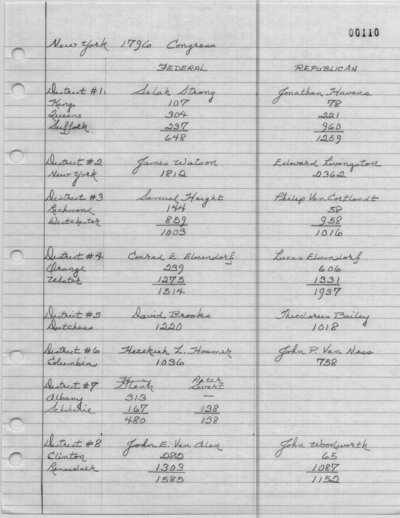 00110
New York 1796 Congress
FEDERAL REPUBLICAN
District #1 Selah Strong Jonathan Havens
Kings 107 78
Queens 304 221
Suffolk 237 960
648 1259
District #2 James Watson Edward Livingston
New York 1812 2362
District #3 Samuel Haight Philip Van Cortlandt
Richmond 144 58
Westchester 859 958
1003 1016
District #4 Conrad E. Elmendorf Lucas Elmendorf
Orange 239 606
Ulster 1275 1331
1514 1937
District #5 David Brooks Theodorus Bailey
Dutchess 1220 1018
District #6 Hezekiah L. Hosmer John P. Van Ness
Columbia 1036 758
District #7 Henry Glenn Peter Swart
Albany 313 —
Schoharie 167 138
480 138
District #8 John E. Van Alen John Woodworth
Clinton 282 65
Rensselaer 1303 1087
1585 1152